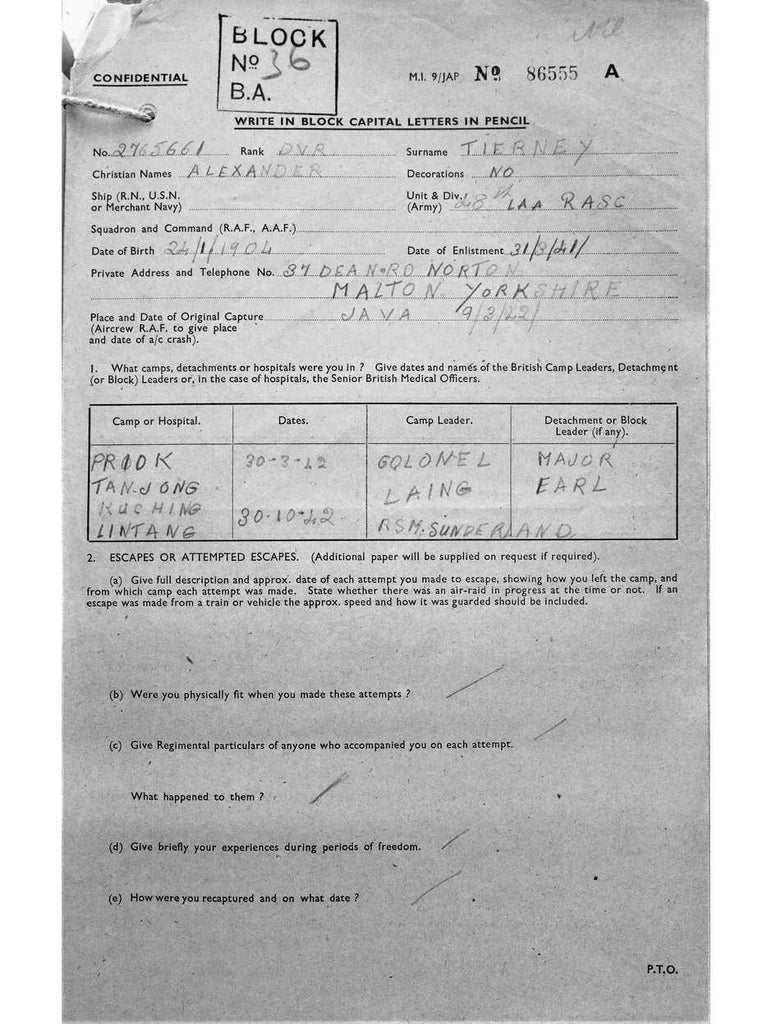 BLOCK
Nº 36
B.A.
CONFIDENTIAL
M.I. 9/JAP Nº 86555 A
WRITE IN BLOCK CAPITAL LETTERS IN PENCIL
No. 2765661 Rank DVR Surname TIERNEY
Christian Names ALEXANDER Decorations NO
Ship (R.N., U.S.N. or Merchant Navy) Unit & Div. (Army) 48th LAA RASC
Squadron and Command (R.A.F., A.A.F.)
Date of Birth 24/1/1904 Date of Enlistment 31/3/41/
Private Address and Telephone No. 37 DEAN RD NORTON
MALTON YORKSHIRE
Place and Date of Original Capture JAVA 9/3/42/
(Aircrew R.A.F. to give place
and date of a/c crash).
1. What camps, detachments or hospitals were you in ? Give dates and names of the British Camp Leaders, Detachment
(or Block) Leaders or, in the case of hospitals, the Senior British Medical Officers.
Camp or Hospital. Dates. Camp Leader. Detachment or Block Leader (if any).
PRIOK 30-3-42 COLONEL MAJOR
TANJONG LAING EARL
KUCHING
LINTANG 30-10-42 RSM. SUNDERLAND
2. ESCAPES OR ATTEMPTED ESCAPES. (Additional paper will be supplied on request if required).
(a) Give full description and approx. date of each attempt you made to escape, showing how you left the camp, and
from which camp each attempt was made. State whether there was an air-raid in progress at the time or not. If an
escape was made from a train or vehicle the approx. speed and how it was guarded should be included.
(b) Were you physically fit when you made these attempts ?
(c) Give Regimental particulars of anyone who accompanied you on each attempt.
What happened to them ?
(d) Give briefly your experiences during periods of freedom.
(e) How were you recaptured and on what date ?
P.T.O.